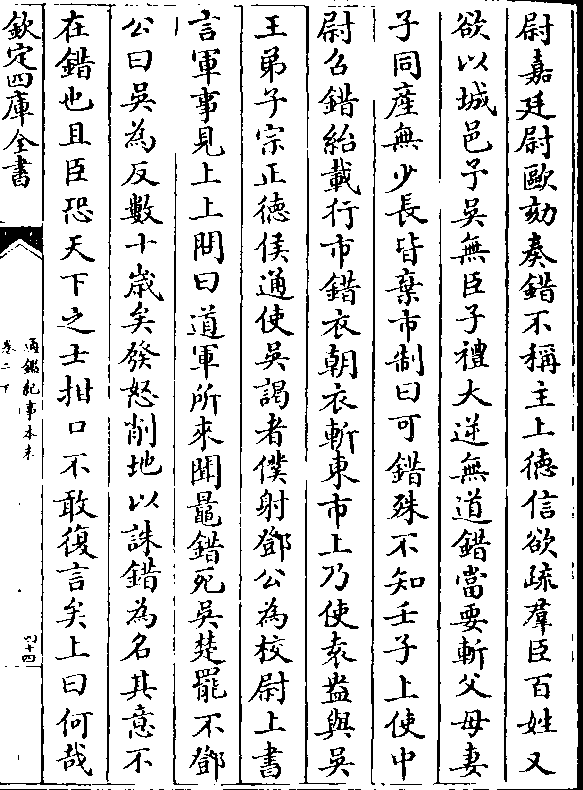 尉嘉廷尉歐劾奏錯不稱主上德信欲疏羣臣百姓又
欲以城邑予吳無臣子禮大逆無道錯當要斬父母妻
子同産無少長皆棄市制曰可錯殊不知壬子上使中
尉召錯紿載行市錯衣朝衣斬東市上乃使袁盎與吳
王弟子宗正德侯通使吳謁者僕射鄧公為校尉上書
言軍事見上上問曰道軍所來聞鼂錯死吳楚罷不鄧
公曰吳為反數十歲矣發怒削地以誅錯為名其意不
在錯也且臣恐天下之士拑口不敢復言矣上曰何哉
欽定四庫全書
通鑑紀事本末
卷二下
十四